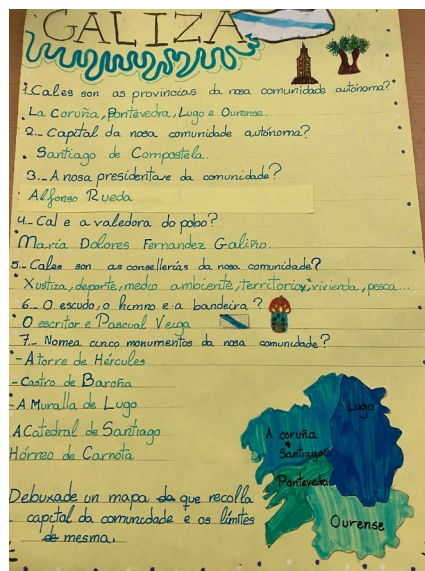 GALIZA
1. Cales son as provincias da nosa comunidade autónoma?
La Coruña, Pontevedra, Lugo e Ourense.
2.- Capital da nosa comunidade autónoma?
Santiago de Compostela.
3.- A nosa presidentase da comunidade?
Alfonso Rueda
4.- Cal e a valedora do pobo?
María Dolores Fernandez Galiño.
5.- Cales son as consellerías da nosa comunidade?
Xustiza, deporte, medio ambiente, territorio, vivienda, pesca...
6.- O escudo, o himno e a bandeira?
O escritor e Pascual Veiga
7.- Nomea cinco monumentos da nosa comunidade?
- A torre de Hércules
- Castro de Baroña
- A Muralla de Lugo
A Catedral de Santiago
Hórreo de Carnota
Debuxade un mapa que recolla
capital da comunidade e os límites
de mesma.
Lugo
A coruña
Santiago
Pontevedra
Ourense